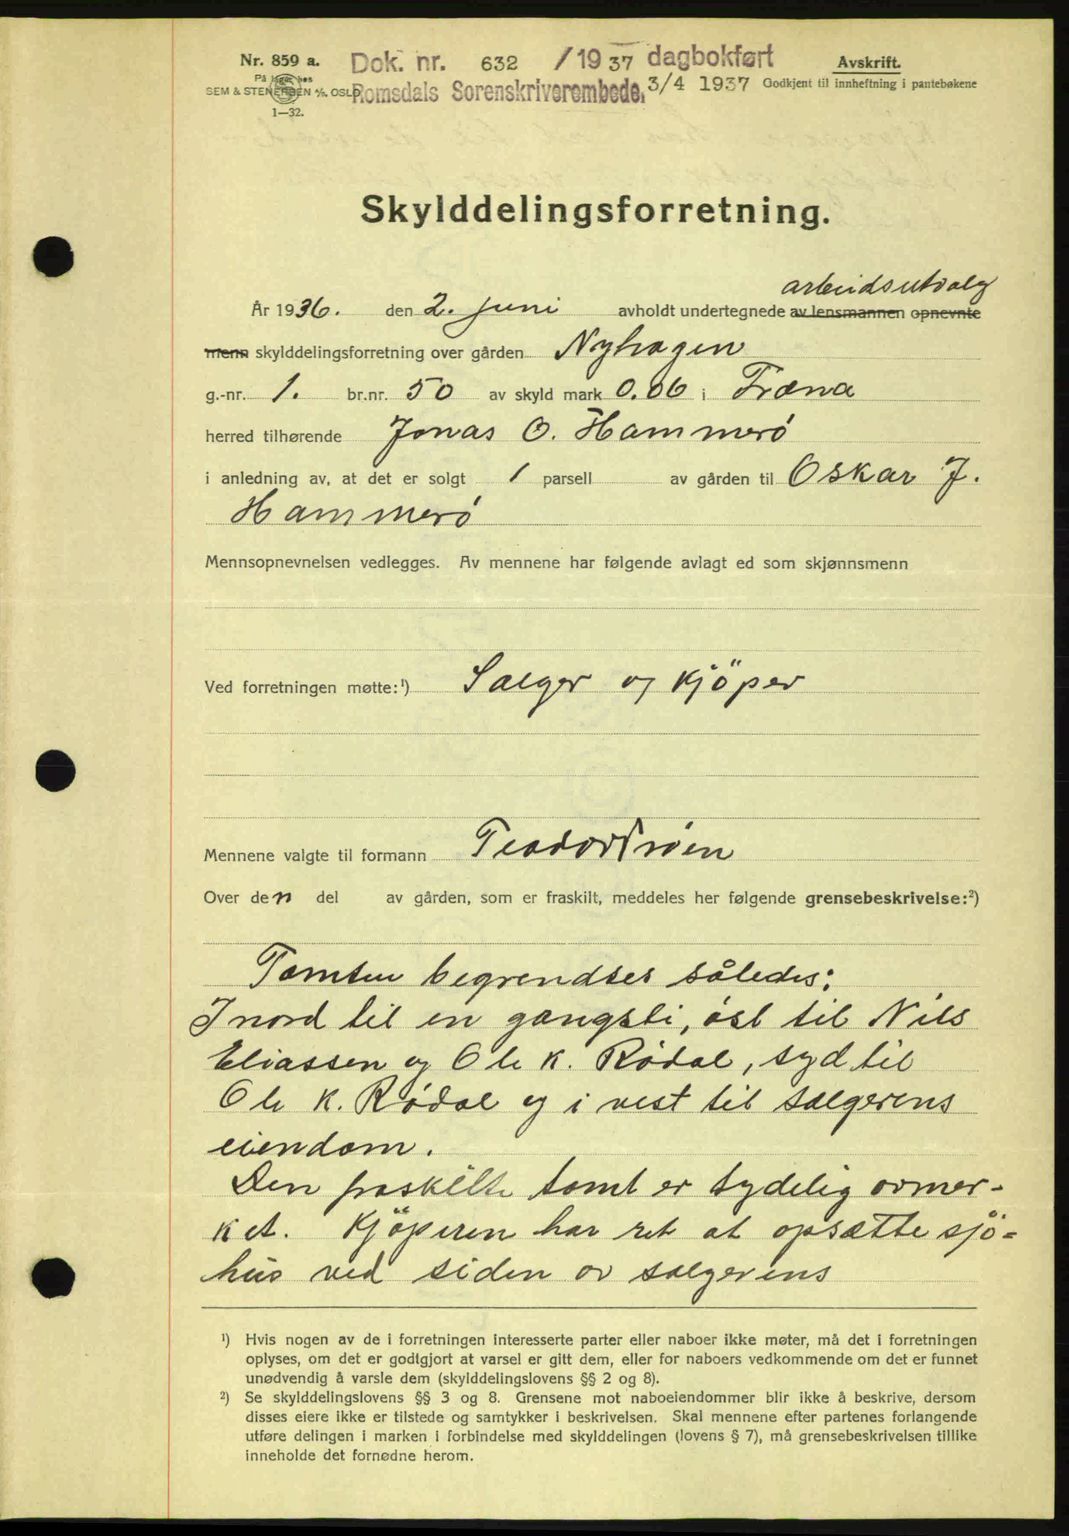 Nr. 859 a.
På lager hos
SEM & STENERSEN A/S, OSLO
1—32.
Dok. nr. 632 /1937 dagbokført
Romsdals Sorenskriverembede, 3/4 1937
Avskrift.
Godkjent til innheftning i pantebøkene
Skylddelingsforretning.
arbeidsutvalg
År 1936. den 2. juni avholdt undertegnede av lensmannen opnevnte
menn skylddelingsforretning over gården Nyhagen
g.-nr. 1. br.nr. 50 av skyld mark 0.06 i Fræna
herred tilhørende Jonas O. Hammerö
i anledning av, at det er solgt 1 parsell av gården til Oskar J.
Hammerö
Mennsopnevnelsen vedlegges. Av mennene har følgende avlagt ed som skjønnsmenn
Ved forretningen møtte:¹) Sælger og kjöper
Mennene valgte til formann Teodor Tröen
Over den del av gården, som er fraskilt, meddeles her følgende grensebeskrivelse:²)
Tomten begrendses således:
I nord til en gangsti, öst til Nils
Eliassen og Ole K. Rödal, syd til
Ole K. Rödal og i vest til sælgerens
eiendom.
Den fraskilte tomt er tydelig avmer-
ket. Kjöperen har ret at opsætte sjö-
hus ved siden av sælgerens
¹) Hvis nogen av de i forretningen interesserte parter eller naboer ikke møter, må det i forretningen
oplyses, om det er godtgjort at varsel er gitt dem, eller for naboers vedkommende om det er funnet
unødvendig å varsle dem (skylddelingslovens §§ 2 og 8).
²) Se skylddelingslovens §§ 3 og 8. Grensene mot naboeiendommer blir ikke å beskrive, dersom
disses eiere ikke er tilstede og samtykker i beskrivelsen. Skal mennene efter partenes forlangende
utføre delingen i marken i forbindelse med skylddelingen (lovens § 7), må grensebeskrivelsen tillike
inneholde det fornødne herom.